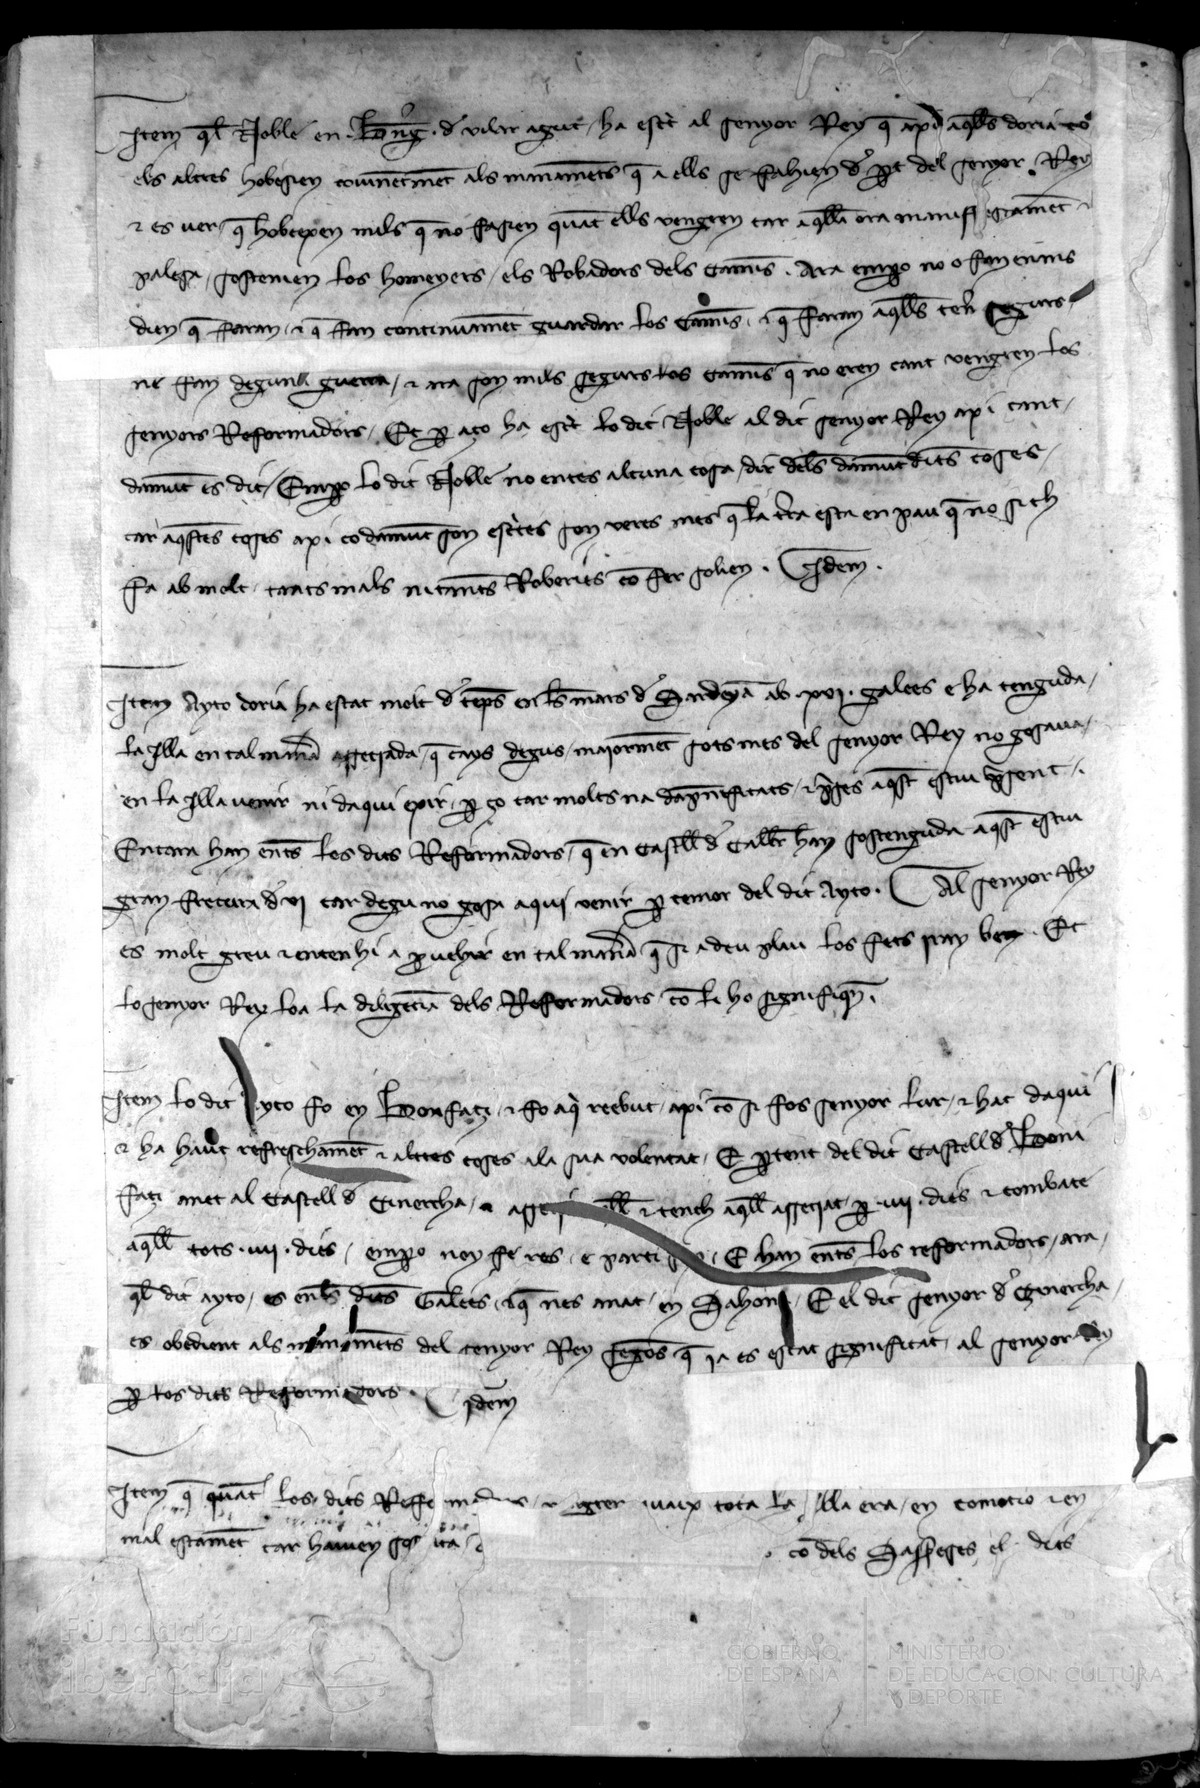 Item ql Noble en · Beng · d vilar agut / ha esct al senyor Rey q axi aqlls doria co
els altres hobesien covinētmēt als manamēts q a ells se fahien d pt del senyor Rey
⁊ es ver / q hobeexen mils q no fasien quāt ells vengren car aqlla ora manifestamēt ⁊
palesa / sostenien los homeyers / els Robadors dels Camīs · Ara empo no o fan en ans
dien q faran / ⁊ q fan continuamēt guardar los Camīs · ⁊ q faran aqlls tenir segurs
ne fan deguna guerra / ⁊ ara son mils segurs los Camīs q no eren cant vengren los
senyors Reformadors / Et p aço ha escit lo dit Noble al dit senyor Rey axi cant /
damūt es dit / Empo lo dit Noble no entes alcuna cosa / dir dels damūt dits coses /
car aqstes coses axi co damūt son escites son veres mes q la tra esta en pau q no si th
fa ab molt / tants mals ni tants Roberies co fer solien · Idem ·
Item Ayto doria ha estat molt d temps en ls mars d Sardeya ab · xvi · galees e ha tenguda /
la Illa en tal manā assetjada / q cays degus / majormēt sotsmes del senyor Rey no gosava /
en la Illa venir ni daqui exir / p ço car molts na dapnificats / ⁊ pses aqst estiu psent / ·
Encara han ents los dits Reformadors / q en Castll d Callr han sostenguda aqst estiu
gran fretura d vi car degu no gosa aqui venir p temor del dit Ayto · Al senyor Rey
es molt greu ⁊ enten hi a pvehir en tal manā q si a deu plau los fets iran ben · Et
lo senyor Rey loa la diligēcia dels Reformadors co li ho signifiqn ·
Item lo dit Ayto fo en Bonifaci / ⁊ fo aqi reebut / axi co si fos senyor lur / ⁊ hac daqui
⁊ ha haut refreschamēt ⁊ altres coses a la sua volentat / E ptent del dit Castell d Boni
faci anet al Castell d Cinercha / ⁊ tench aqll assetjat / p · viii · dies ⁊ combate
aqll tots · viii · dies / empo noy fe res / e parti · E han ents los reformadors / ara /
ql dit ayto / es en ls dits Galees / ⁊ q nes anat / en Sahona / E el dit senyor d Cinercha /
es obedient als manamēts del senyor Rey segons q ja es estat significat / al senyor Rey
p los dits Reformadors · Idem
Item q quāt los dits Refformadors tota la Illa era / en comocio ⁊ en
mal estamēt car havien co dels Sasseses el dits
Fundación
ibercaja
GOBIERNO
DE ESPAÑA
MINISTERIO
DE EDUCACIÓN, CULTURA
Y DEPORTE